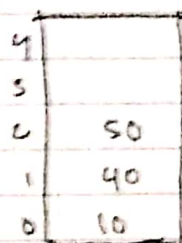 4
3
2 50
1 40
0 10